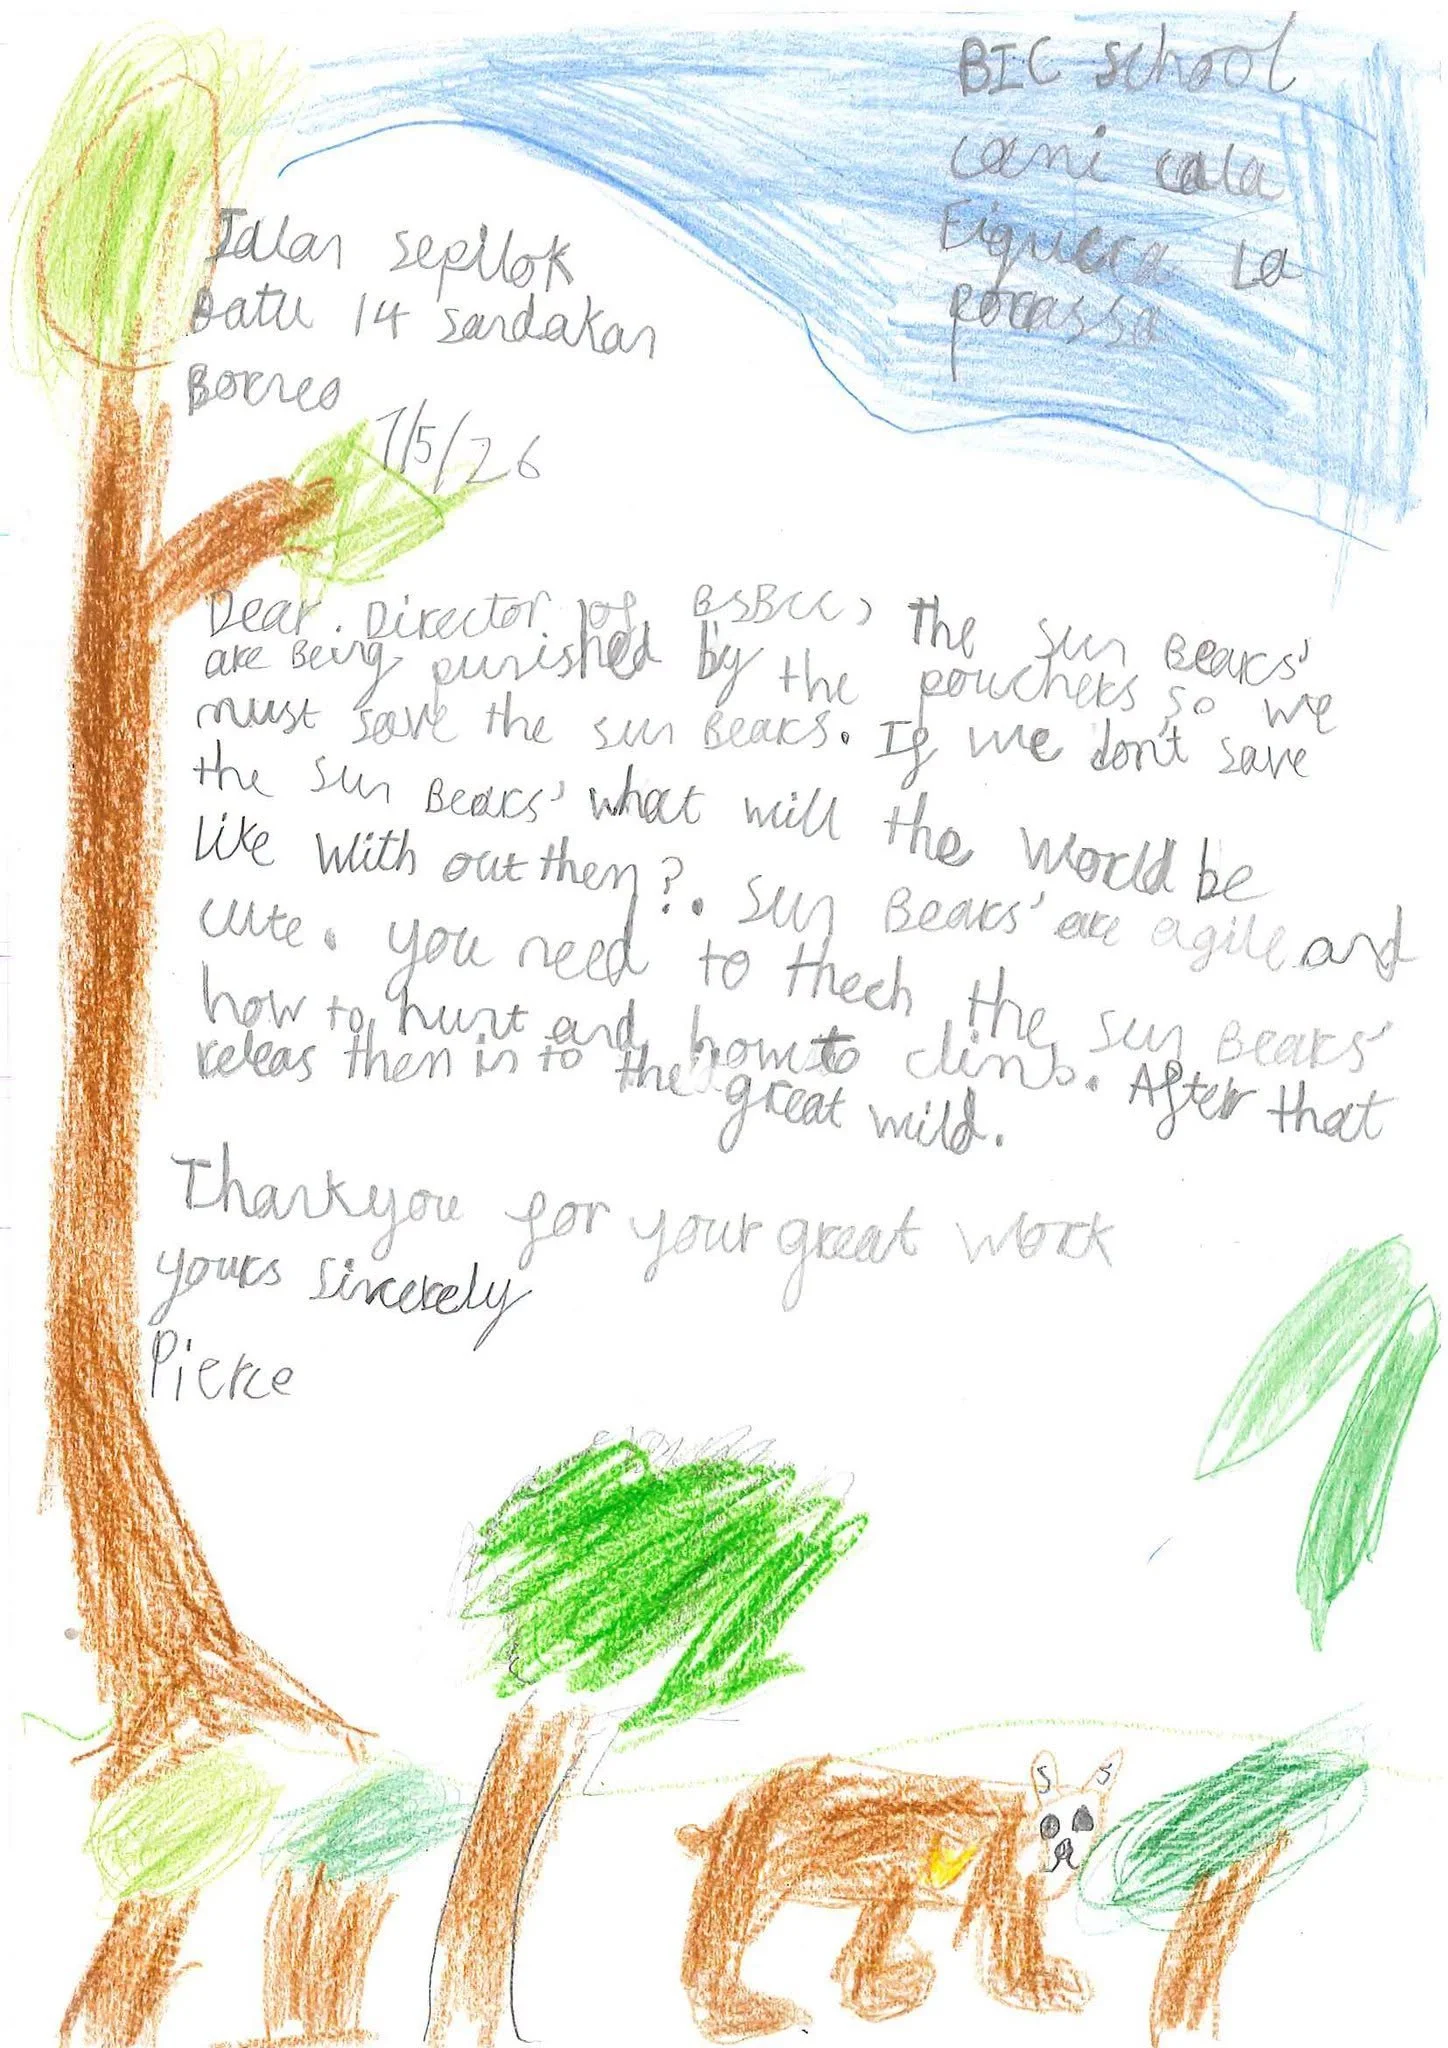 BIC school
cami cala
Figuera La
porrassa
Jalan sepilok
Batu 14 sandakan
Borneo
7/5/26
Dear. Director of BSBCC, the sun Bears'
are Being punished by the pouchers, so we
must save the sun Bears. If we don't save
the sun Bears' what will the world be
like with out them?. Sun Bears' are agile and
cute. you need to theech the sun Bears'
how to hunt and how to climb. After that
releas them in to the great wild.
Thankyou for your great work
yours sincerely
Pierce